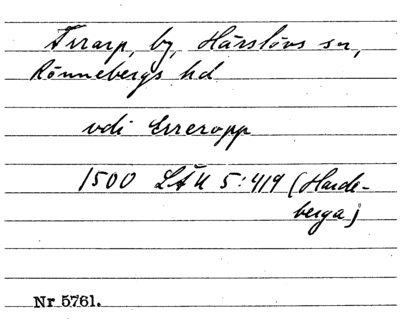 Tirarp, by, Härslövs sn,
Rönnebergs hd
vdi Erreropp
1500 LÄU 5:419 (Harde-
berga)
Nr 5761.